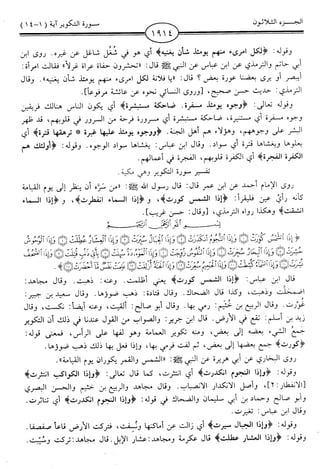 الجـــزء الثلاثـــون
١٩١٤
سورة التكوير آية (١-١٤)
وقوله: ﴿لكل امرىء منهم يومئذ شأن يغنيه﴾ أي هو في شُغُل شاغل عن غيره. روى ابن
أبي حاتم والترمذي عن ابن عباس عن النبي ﷺ قال: «تحشرون حفاة عراة غرلاً» فقالت امرأة:
أيبصر أو يرى بعضنا عورة بعض؟ قال: «يا فلانة لكل امرىء منهم يومئذ شأن يغنيه». وقال
الترمذي: حديث حسن صحيح، [وروى النسائي نحوه عن عائشة مرفوعاً].
وقوله تعالى: ﴿وجوه يومئذ مسفرة. ضاحكة مستبشرة﴾ أي يكون الناس هنالك فريقين
وجوه مسفرة أي مستنيرة، ضاحكة مستبشرة أي مسرورة فرحة من السرور في قلوبهم، قد ظهر
البشر على وجوههم، وهؤلاء هم أهل الجنة. ﴿ووجوه يومئذ عليها غبرة * ترهقها قترة﴾ أي
يعلوها ويغشاها قترة أي سواد. وقال ابن عباس: يغشاها سواد الوجوه. وقوله: ﴿أولئك هم
الكفرة الفجرة﴾ أي الكفرة قلوبهم، الفجرة في أعمالهم.
تفسير سورة التكوير وهي مكية.
روى الإمام أحمد عن ابن عمر قال: قال رسول الله ﷺ: «من سرَّه أن ينظر إلى يوم القيامة
كأنه رأيُ عين فليقرأ: ﴿إذا الشمس كورت﴾، و ﴿إذا السماء انفطرت﴾، و ﴿إذا السماء
انشقت﴾ وهكذا رواه الترمذي، [وقال: حسن غريب].
﴿إِذَا ٱلشَّمْسُ كُوِّرَتْ ۝ وَإِذَا ٱلنُّجُومُ ٱنكَدَرَتْ ۝ وَإِذَا ٱلْجِبَالُ سُيِّرَتْ ۝ وَإِذَا ٱلْعِشَارُ عُطِّلَتْ ۝ وَإِذَا ٱلْوُحُوشُ
قال ابن عباس: ﴿إذا الشمس كورت﴾ يعني أظلمت. وعنه: ذهبت. وقال مجاهد:
اضمحلّت وذهبت، وكذا قال الضحاك. وقال قتادة: ذهب ضوؤها. وقال سعيد بن جبير:
غورت. وقال الربيع بن خُثيم: رمي بها. وقال أبو صالح: ألقيت، وعنه أيضاً: نكست، وقال
زيد بن أسلم: تقع في الأرض. قال ابن جرير: والصواب من القول عندنا في ذلك أن التكوير
جمع الشيء بعضه إلى بعض، ومنه تكوير العمامة وهو لفها على الرأس، فمعنى قوله:
﴿كورت﴾ جمع بعضها إلى بعض، ثم لفت فرمي بها، وإذا فعل بها ذلك ذهب ضوؤها.
روى البخاري عن أبي هريرة عن النبي ﷺ: «الشمس والقمر يكوران يوم القيامة».
وقوله: ﴿وإذا النجوم انكدرت﴾ أي انتثرت، كما قال تعالى: ﴿وإذا الكواكب انتثرت﴾
[الانفطار: ٢]، وأصل الانكدار الانصباب. وقال مجاهد والربيع بن خثيم والحسن البصري
وأبو صالح وحماد بن أبي سليمان والضحاك في قوله: ﴿وإذا النجوم انكدرت﴾ أي تناثرت.
وقال ابن عباس: تغيرت.
وقوله: ﴿وإذا الجبال سيرت﴾ أي زالت عن أماكنها ونُسفت، فتركت الأرض قاعاً صفصفا.
وقوله: ﴿وإذا العشار عطلت﴾ قال عكرمة ومجاهد: عشار الإبل. قال مجاهد: تركت وسُيّبت.